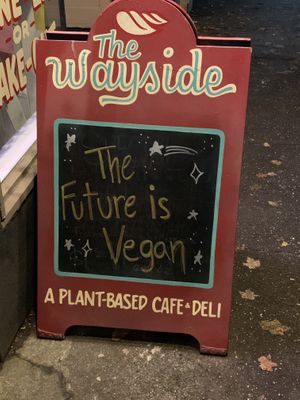 The
Wayside
The
Future is
Vegan
A PLANT-BASED CAFE & DELI
OR